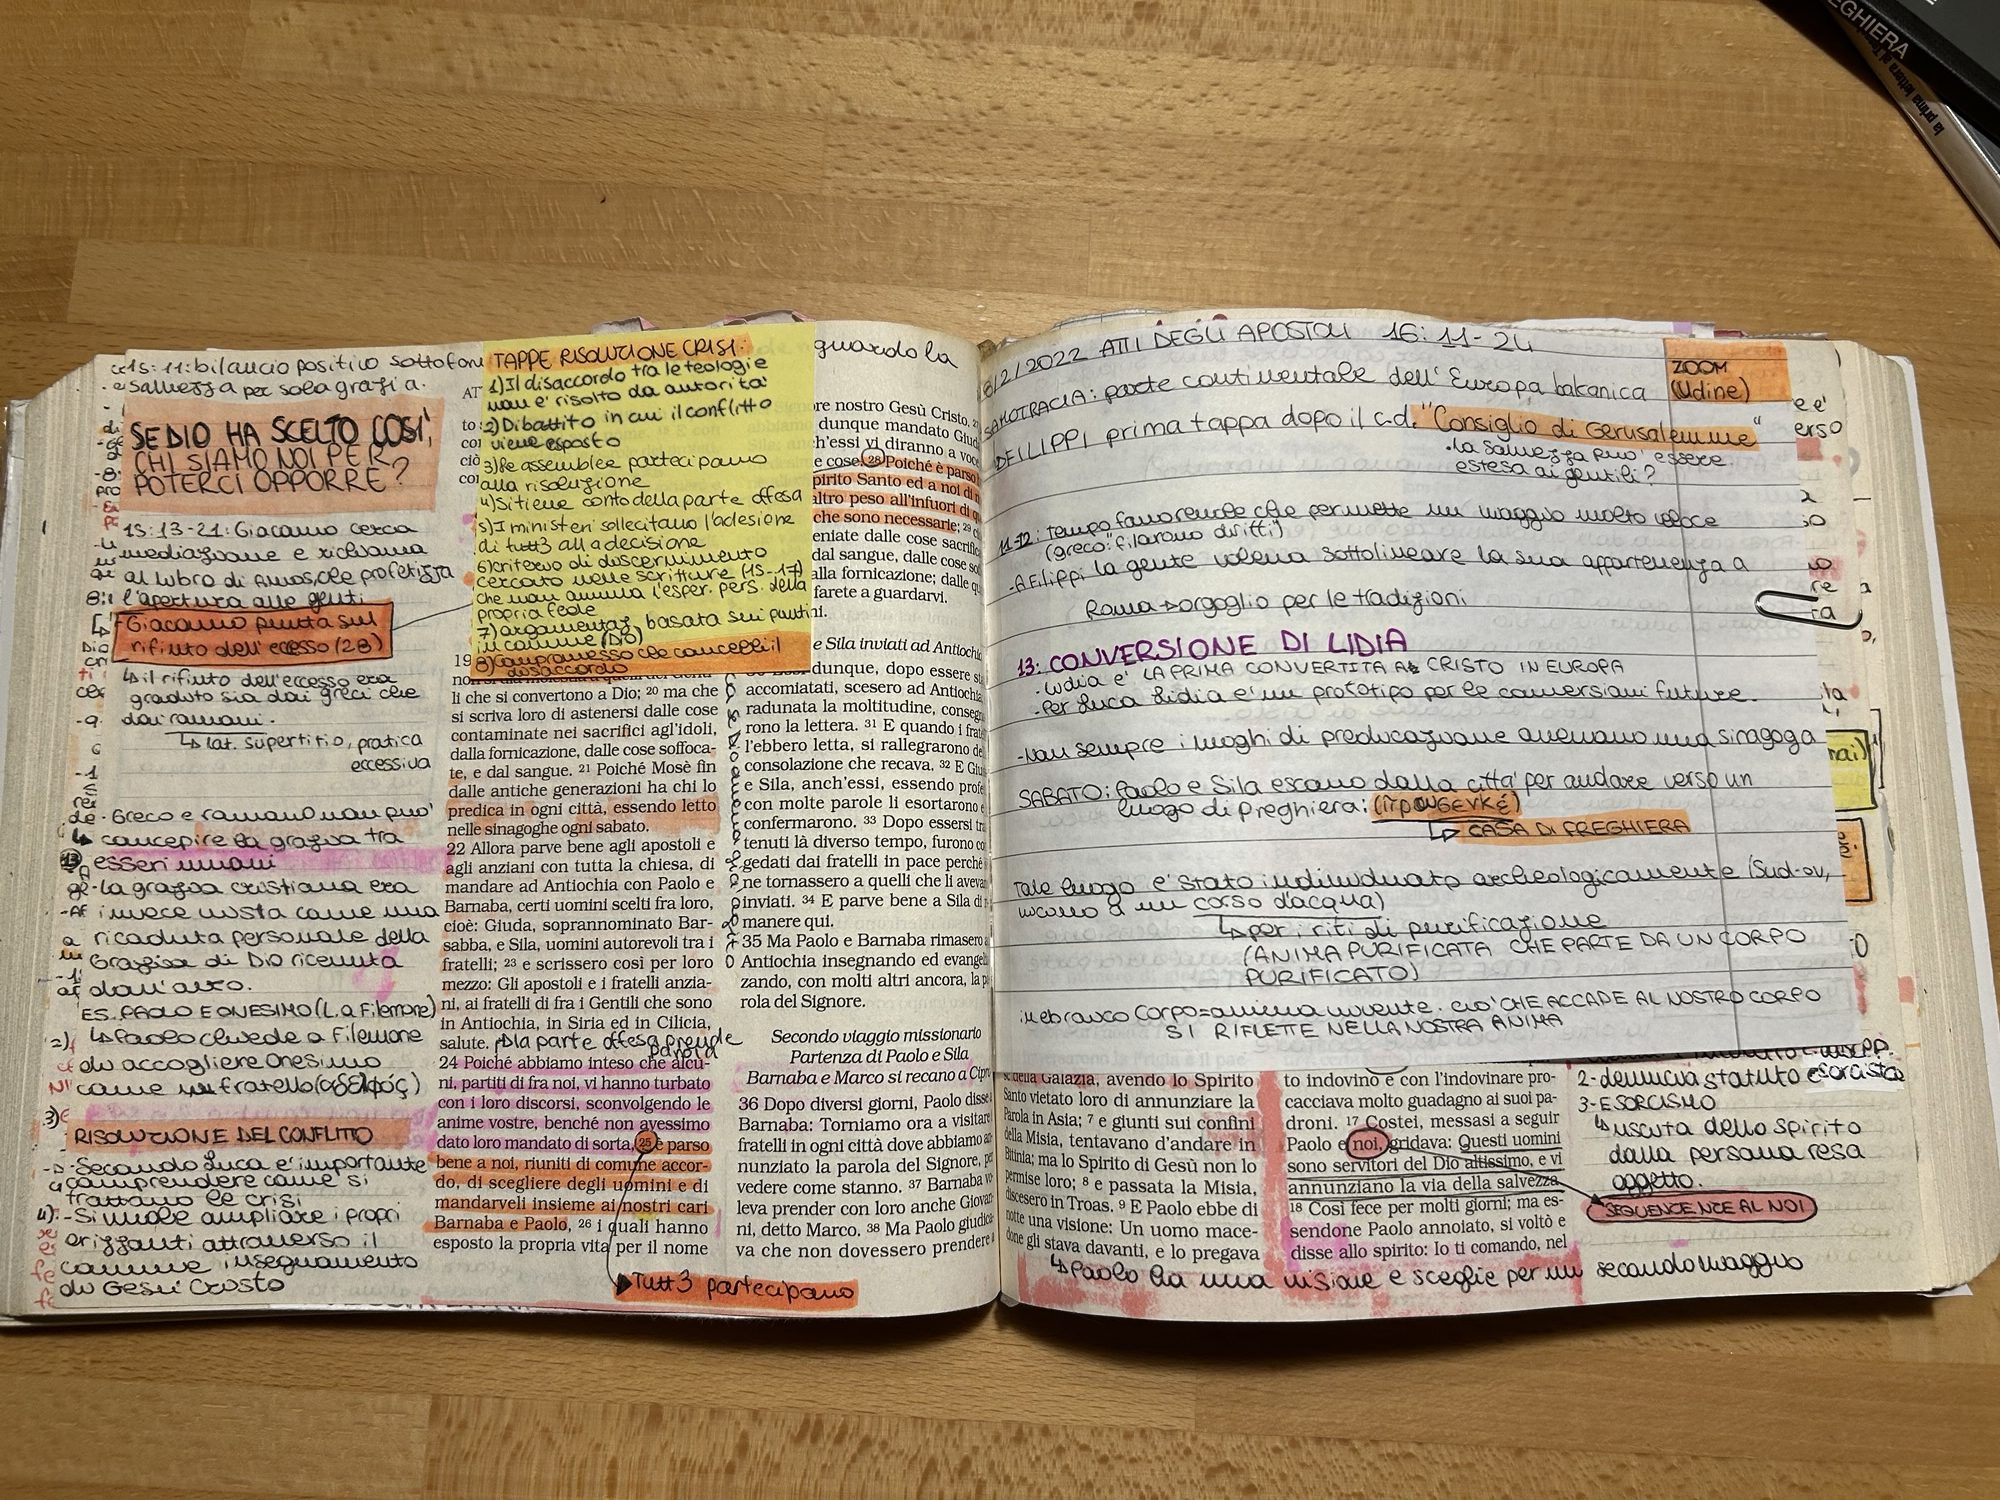 15:11: bilancio positivo
salvezza per sola grazia.
SE DIO HA SCELTO COSÌ,
CHI SIAMO NOI PER
POTERCI OPPORRE?
15:13-21: Giacomo cerca
mediazione e richiama
al libro di Amos, che profetizza
l'apertura alle genti
Giacomo punta sul
rifiuto dell'eccesso (28)
↳ il rifiuto dell'eccesso era
gradito sia dai greci che
dai romani.
↳ lat. supertitio, pratica
eccessiva
- Greco e romano non può
concepire la grazia tra
esseri umani
- La grazia cristiana era
invece vista come una
ricaduta personale della
Grazia di Dio ricevuta
dall'alto.
ES. PAOLO E ONESIMO (L. a Filemone)
↳ Paolo chiede a Filemone
di accogliere Onesimo
come un fratello (αδελφός)
RISOLUZIONE DEL CONFLITTO
- Secondo Luca è importante
comprendere come si
trattano le crisi
- Si vuole ampliare i propri
orizzonti attraverso il
comune insegnamento
di Gesù Cristo
TAPPE RISOLUZIONE CRISI:
1) Il disaccordo tra le teologie
non è risolto da autorità
2) Dibattito in cui il conflitto
viene esposto
3) Le assemblee partecipano
alla risoluzione
4) Si tiene conto della parte offesa
5) I ministeri sollecitano l'adesione
di tutt3 alla decisione
6) criterio di discernimento
cercato nelle scritture (15-17)
che non annulla l'esper. pers. della
propria fede
7) argomentaz. basata sui punti
in comune (Dio)
8) Compromesso che concilii il
disaccordo
19
li che si convertono a Dio; 20 ma che
si scriva loro di astenersi dalle cose
contaminate nei sacrifici agl'idoli,
dalla fornicazione, dalle cose soffoca-
te, e dal sangue. 21 Poiché Mosè fin
dalle antiche generazioni ha chi lo
predica in ogni città, essendo letto
nelle sinagoghe ogni sabato.
22 Allora parve bene agli apostoli e
agli anziani con tutta la chiesa, di
mandare ad Antiochia con Paolo e
Barnaba, certi uomini scelti fra loro,
cioè: Giuda, soprannominato Bar-
sabba, e Sila, uomini autorevoli tra i
fratelli; 23 e scrissero così per loro
mezzo: Gli apostoli e i fratelli anzia-
ni, ai fratelli di fra i Gentili che sono
in Antiochia, in Siria ed in Cilicia,
salute. la parte offesa prende
parola
24 Poiché abbiamo inteso che alcu-
ni, partiti di fra noi, vi hanno turbato
con i loro discorsi, sconvolgendo le
anime vostre, benché non avessimo
dato loro mandato di sorta, 25 è parso
bene a noi, riuniti di comune accor-
do, di scegliere degli uomini e di
mandarveli insieme ai nostri cari
Barnaba e Paolo, 26 i quali hanno
esposto la propria vita per il nome
Tutt3 partecipano
guardo la
nostro Gesù Cristo.
dunque mandato
ch'essi vi diranno a
cose. 28 Poiché è parso
Spirito Santo ed a noi di
altro peso all'infuori di
che sono necessarie; 29
dalle cose
dal sangue, dalle cose
alla fornicazione; dalle
farete a guardarvi.
e Sila inviati ad
dunque, dopo essere
accomiatati, scesero ad
radunata la moltitudine,
rono la lettera. 31 E quando i
l'ebbero letta, si rallegrarono
consolazione che recava. 32 E
e Sila, anch'essi, essendo
con molte parole li esortarono e
confermarono. 33 Dopo essersi
tenuti là diverso tempo, furono
gedati dai fratelli in pace perché
ne tornassero a quelli che li
inviati. 34 E parve bene a Sila di
manere qui.
35 Ma Paolo e Barnaba rimasero
Antiochia insegnando ed
zando, con molti altri ancora, la
rola del Signore.
Secondo viaggio missionario
Partenza di Paolo e Sila
Barnaba e Marco si recano a
36 Dopo diversi giorni, Paolo disse
Barnaba: Torniamo ora a visitare
fratelli in ogni città dove abbiamo
nunziato la parola del Signore,
vedere come stanno. 37 Barnaba
leva prender con loro anche
ni, detto Marco. 38 Ma Paolo
va che non dovessero prendere
/2/2022 ATTI DEGLI APOSTOLI 16:11-24
ZOOM
(Udine)
SAMOTRACIA: parte continentale dell'Europa balcanica
FILIPPI prima tappa dopo il c.d. "Consiglio di Gerusalemme"
• la salvezza può essere
estesa ai gentili?
11-12: tempo favorevole che permette un viaggio molto veloce
(greco: "filarono diritti")
- A Filippi la gente voleva sottolineare la sua appartenenza a
Roma → orgoglio per le tradizioni
13: CONVERSIONE DI LIDIA
- Lidia È LA PRIMA CONVERTITA A CRISTO IN EUROPA
- Per Luca Lidia è un prototipo per le conversioni future.
- Non sempre i luoghi di predicazione avevano una sinagoga
SABATO: Paolo e Sila escono dalla città per andare verso un
luogo di preghiera:
↳ CASA DI PREGHIERA
Tale luogo è stato individuato archeologicamente (Sud-ov,
vicino a un corso d'acqua)
↳ per i riti di purificazione
(ANIMA PURIFICATA CHE PARTE DA UN CORPO
PURIFICATO)
in ebraico Corpo = anima vivente. ciò CHE ACCADE AL NOSTRO CORPO
SI RIFLETTE NELLA NOSTRA ANIMA
della Galazia, avendo lo Spirito
Santo vietato loro di annunziare la
Parola in Asia; 7 e giunti sui confini
della Misia, tentavano d'andare in
Bitinia; ma lo Spirito di Gesù non lo
permise loro; 8 e passata la Misia,
discesero in Troas. 9 E Paolo ebbe di
notte una visione: Un uomo mace-
done gli stava davanti, e lo pregava
to indovino e con l'indovinare pro-
cacciava molto guadagno ai suoi pa-
droni. 17 Costei, messasi a seguir
Paolo e noi, gridava: Questi uomini
sono servitori del Dio altissimo, e vi
annunziano la via della salvezza.
18 Così fece per molti giorni; ma es-
sendone Paolo annoiato, si voltò e
disse allo spirito: Io ti comando, nel
2- denuncia statuto esorcista
3- ESORCISMO
↳ uscita dello spirito
dalla persona resa
oggetto.
SEQUENCE NCE AL NOI
↳ Paolo ha una visione e sceglie per un secondo viaggio
la prima lettera ai